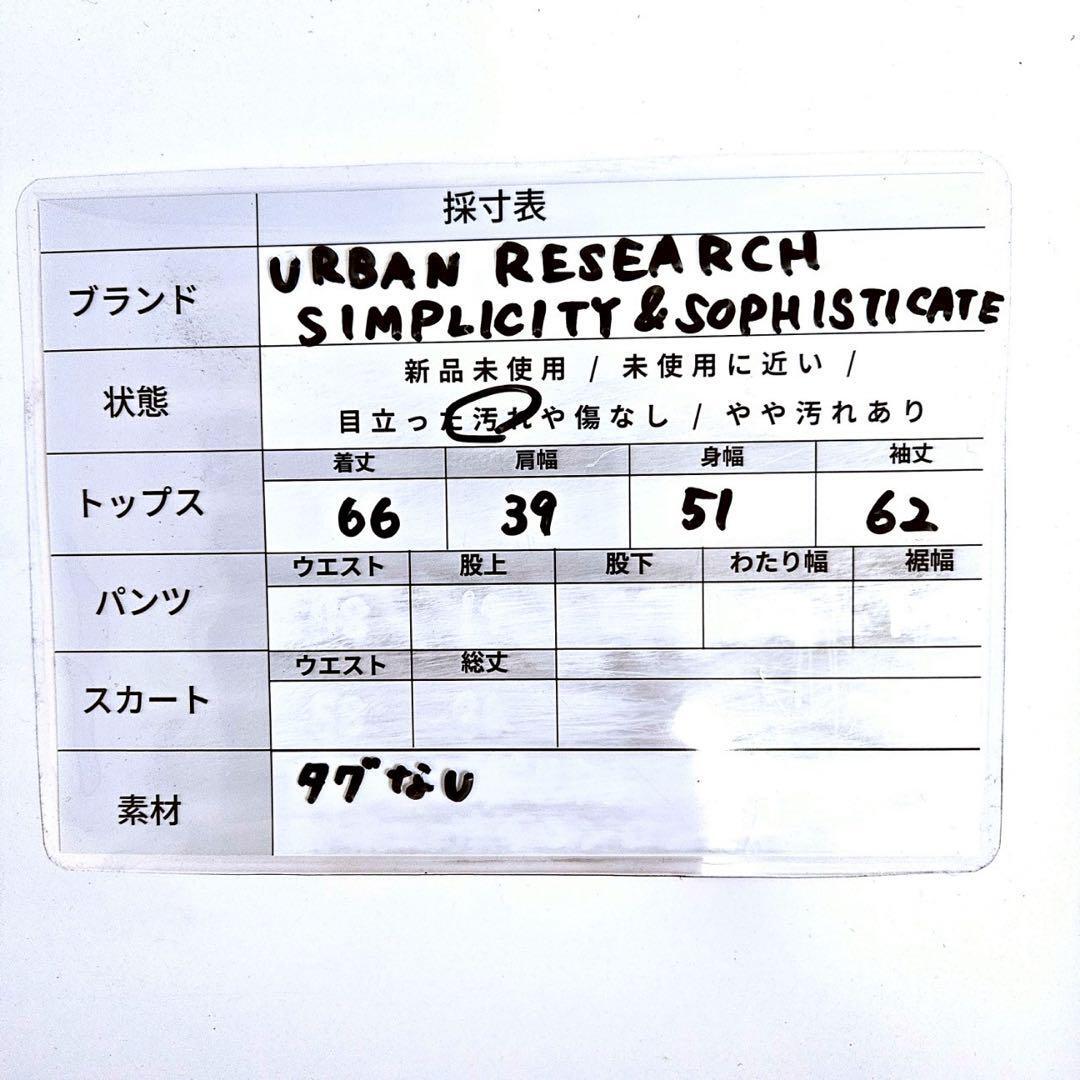 採寸表
ブランド
URBAN RESEARCH
SIMPLICITY & SOPHISTICATE
状態
新品未使用 / 未使用に近い /
目立った汚れや傷なし / やや汚れあり
トップス
着丈 肩幅 身幅 袖丈
66 39 51 62
パンツ
ウエスト 股上 股下 わたり幅 裾幅
スカート
ウエスト 総丈
素材
タグなし